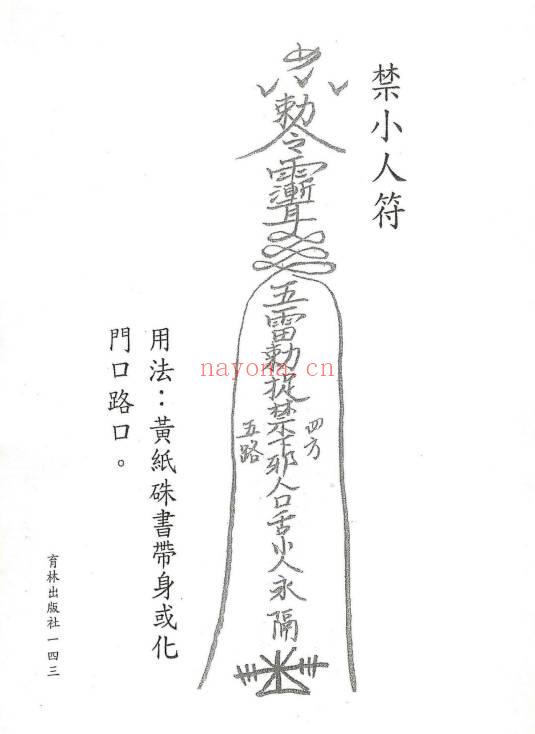 禁小人符
勅令
五雷勅捉禁下邪人口舌小人永隔
四方
五路
用法：黃紙硃書帶身或化
門口路口。
育林出版社一四三
nayona.cn